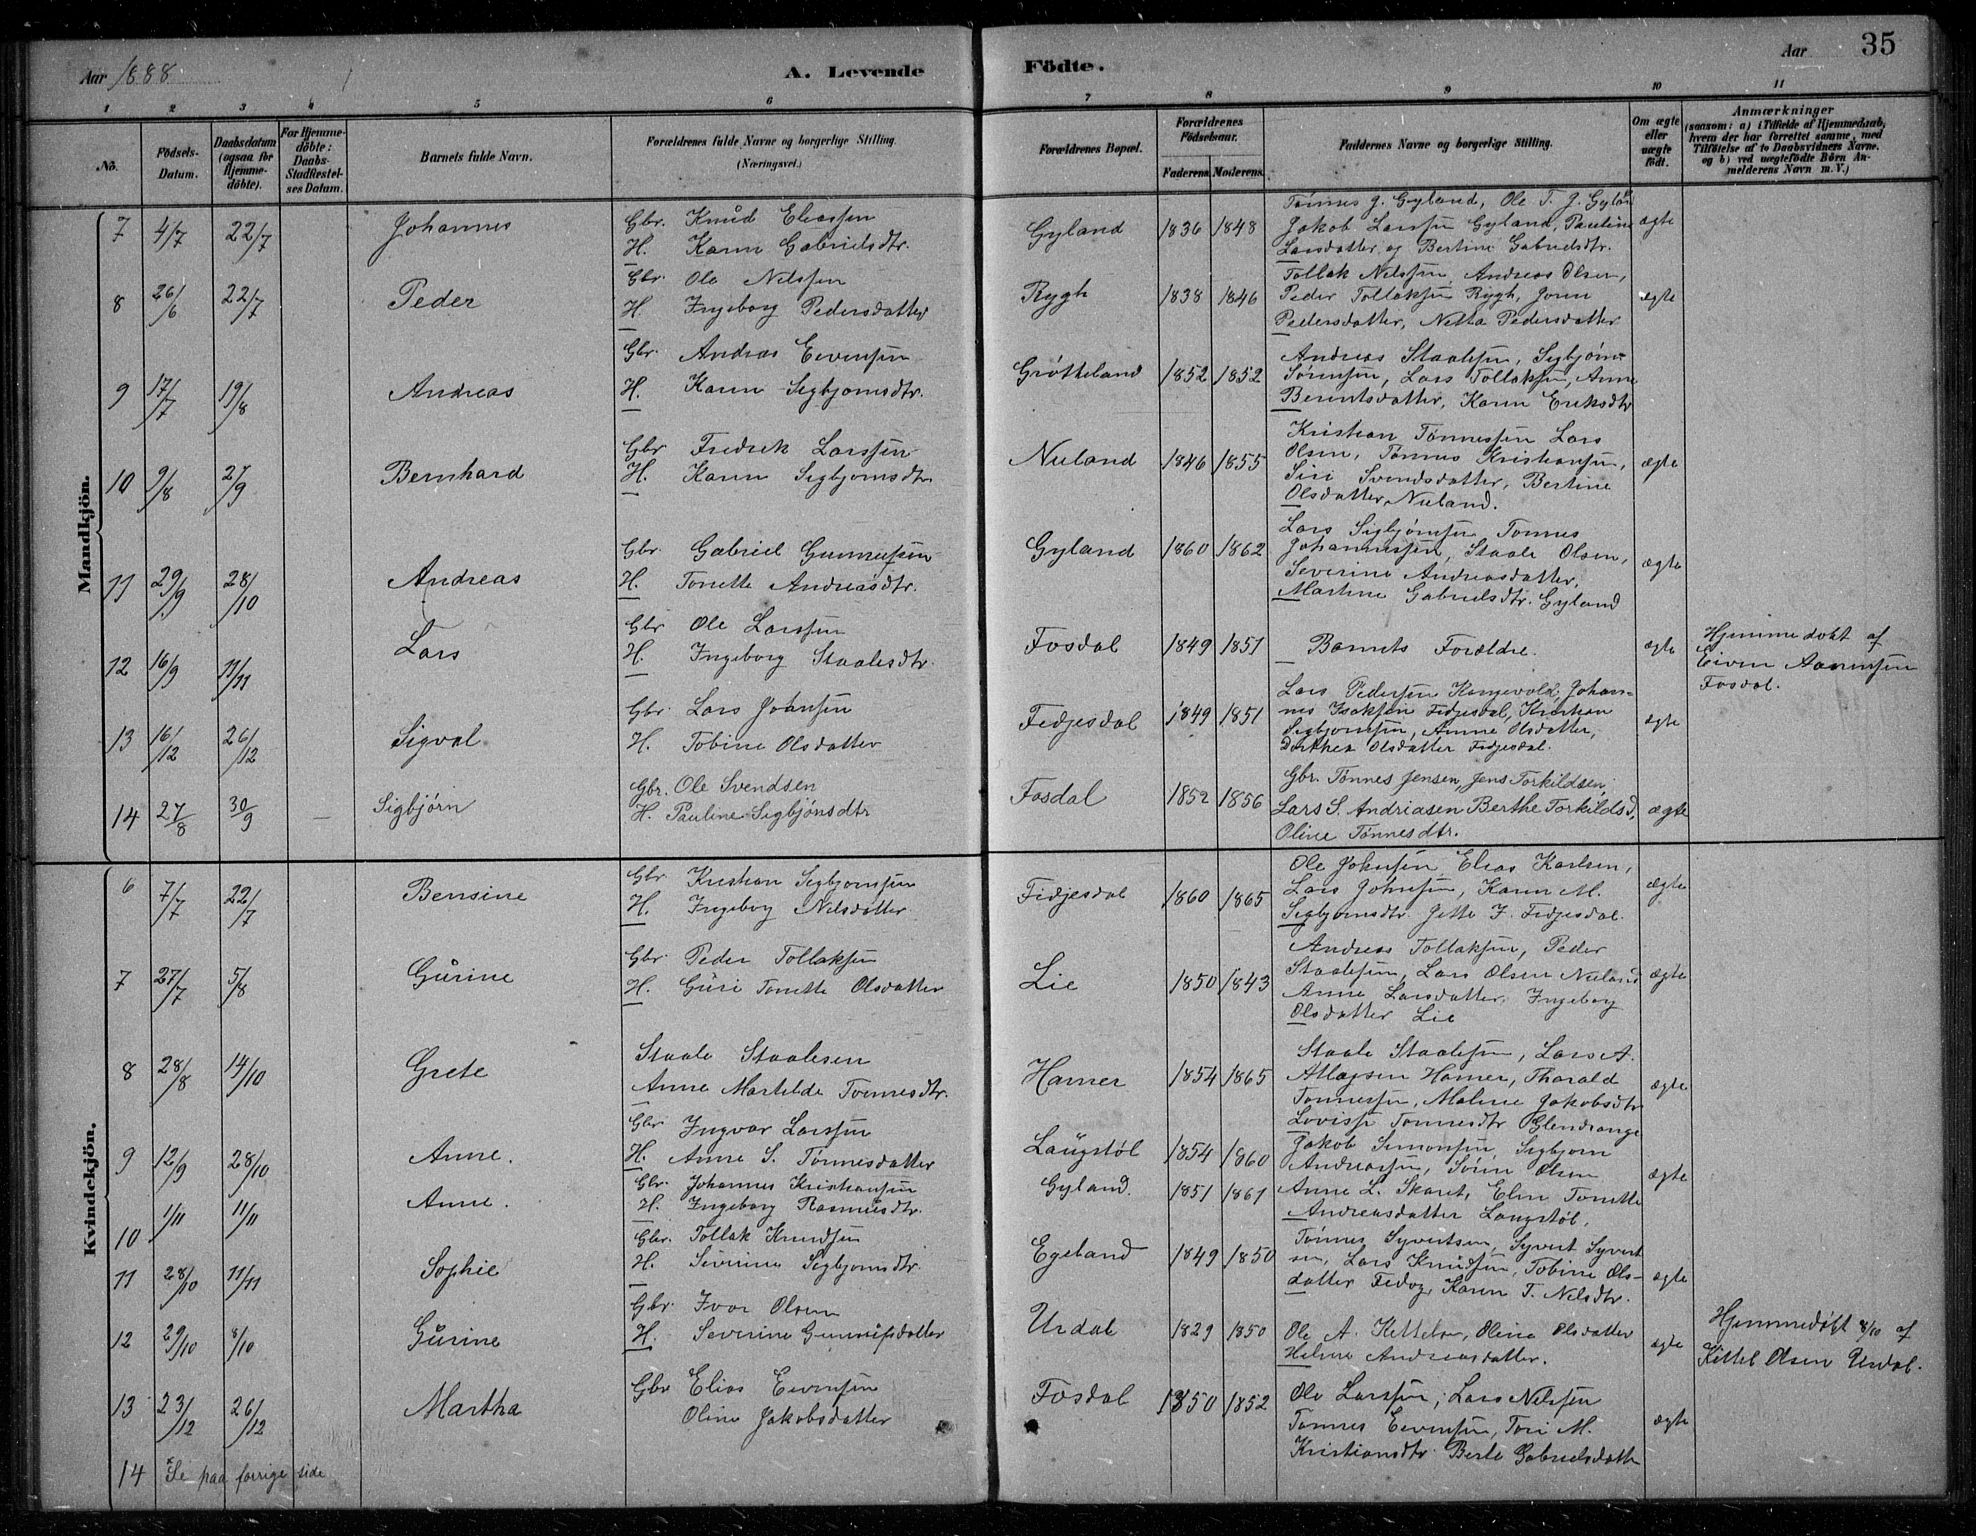 Aar 1888 A. Levende Födte. Aar 35
1 2 3 4 5 6 7 8 9 10 11
No. Födsels-Datum. Daabsdatum (ogsaa for Hjemme-döbte). For Hjemme-döbte: Daabs-Stadfæstel-ses Datum. Barnets fulde Navn. Forældrenes fulde Navne og borgerlige Stilling. (Næringsvei.) Forældrenes Bopæl. Forældrenes Födselsaar. Faderens Moderens. Faddernes Navne og borgerlige Stilling. Om ægte eller uægte födt. Anmærkninger (saasom: a) i Tilfælde af Hjemmedaab, hvem der har forrettet samme, med Tilföielse af to Daabsvidners Navne, og b) ved uægtefödte Börn An-melderens Navn m. V.)
Mandkjön.
7 4/7 22/7 Johannes Gbr. Knud Eliassen
H. Karen Gabrielsdtr. Gyland 1836 1848 Tønnes J. Gyland, Ole T. J. Gyland
Jakob Larssen Gyland, Pauline
Larsdatter og Bertine Gabrielsdtr. ægte
8 26/6 22/7 Peder Gbr. Ole Nilssen
H. Ingeborg Pedersdatter Rygh 1838 1846 Tollak Nilssen, Andreas Olsen,
Peder Tollaksen Rygh, Joren
Pedersdatter, Netta Pedersdatter ægte
9 17/7 19/8 Andreas Gbr. Andreas Eivensen
H. Karen Sigbjornsdtr. Grøtteland 1852 1852 Andreas Staalesen, Sigbjørn
Sørensen, Lars Tollaksen, Anne
Berentsdatter, Karen Eriksdtr
10 9/8 2/9 Bernhard Gbr Fredrik Larssen
H. Karen Sigbjornsdtr. Nuland 1846 1855 Kristian Tønnessen Lars
Olsen, Tønnes Kristiansen,
Siri Svendsdatter, Bertine
Olsdatter Nuland. ægte
11 29/9 28/10 Andreas Gbr Gabriel Gunnufsen
H. Tonette Andreasdtr. Gyland 1860 1862 Lars Sigbjørnsen Tonnes
Johannessen, Staale Olsen,
Severine Andreasdatter,
Martine Gabrielsdtr. Gyland ægte
12 16/9 11/11 Lars Gbr Ole Larssen
H. Ingeborg Staalesdtr. Fosdal 1849 1851 Barnets Forældre. ægte Hjemmedøbt af
Eiven Aanensen
Fosdal.
13 16/12 26/12 Sigval Gbr. Lars Johnsen
H. Tobine Olsdatter Fidjesdal 1849 1851 Lars Pedersen Kongevold, Johan-
nes Isaksen Fidjesdal, Kristian
Sigbjornsen, Anne Olsdatter,
Dorthea Olsdatter Fidjesdal. ægte
14 27/8 30/9 – Sigbjörn Gbr. Ole Svendsen
H. Pauline Sigbjönsdtr Fosdal 1852 1856 Gbr. Tønnes Jensen, Jens Torkildsen,
Lars S. Andriasen Berthe Torkildsd,
Oline Tønnesdtr. ægte
Kvindekjön.
6 7/7 22/7 Bensine Gbr Kristian Sigbjornsen
H. Ingeborg Nilsdatter Fidjesdal 1860 1865 Ole Johnsen, Elias Karlsen,
Lars Johnsen, Karen M.
Sigbjornsdtr. Jette F. Fidjesdal. ægte
7 27/7 5/8 Gurine Gbr Peder Tollaksen
H. Guri Tonette Olsdatter Lie 1850 1843 Andreas Tollaksen, Peder
Staalesen, Lars Olsen Nuland
Anne Larsdatter, Ingeborg
Olsdatter Lie ægte
8 28/8 14/10 Grete Staale Staalesen
Anne Martilde Tonnesdtr. Hamer 1854 1865 Staale Staalesen, Lars A.
Atlagsen Hamer, Tharald
Tonnessen, Malene Jakobsdtr
Lovise Tonnesdtr Glendrange ægte
9 12/9 28/10 Anne. Gbr Ingvar Larssen
H. Anne S. Tønnesdatter Laugstøl 1854 1860 Jakob Simonsen, Sigbjorn
Andreassen, Søren Olsen ægte
10 1/11 11/11 Anne. Gbr. Johannes Kristiansen
H. Ingeborg Rasmusdtr. Gyland. 1851 1861 Anne L. Skaret, Elen Tonette
Andreasdatter Laugstøl.
11 28/10 11/11 Sophie Gbr. Tollak Knudsen
H. Severine Sigbjornsdtr. Egeland 1849 1850 Tønnes Syvertsen, Syvert Syvert
sen, Lars Knudsen, Tobine Ols-
datter Fedog, Karen T. Nilsdtr. ægte
12 29/10 8/10 Gurine Gbr. Ivar Olsen
H. Severine Gunnufsdatter Urdal 1829 1850 Ole A. Kettelsen, Oline Olsdatter
Helene Andreasdatter. ægte Hjemmedøbt 8/10 af
Kittel Olsen Urdal.
13 23/12 26/12 Martha Gbr Elias Eivensen
Oline Jakobsdatter Fosdal 1850 1852 Ole Larssen, Lars Nilssen
Tønnes Eivensen, Tori M.
Kristiansdtr. Berte Gabrielsdatter ægte
14 *Se paa forrige side